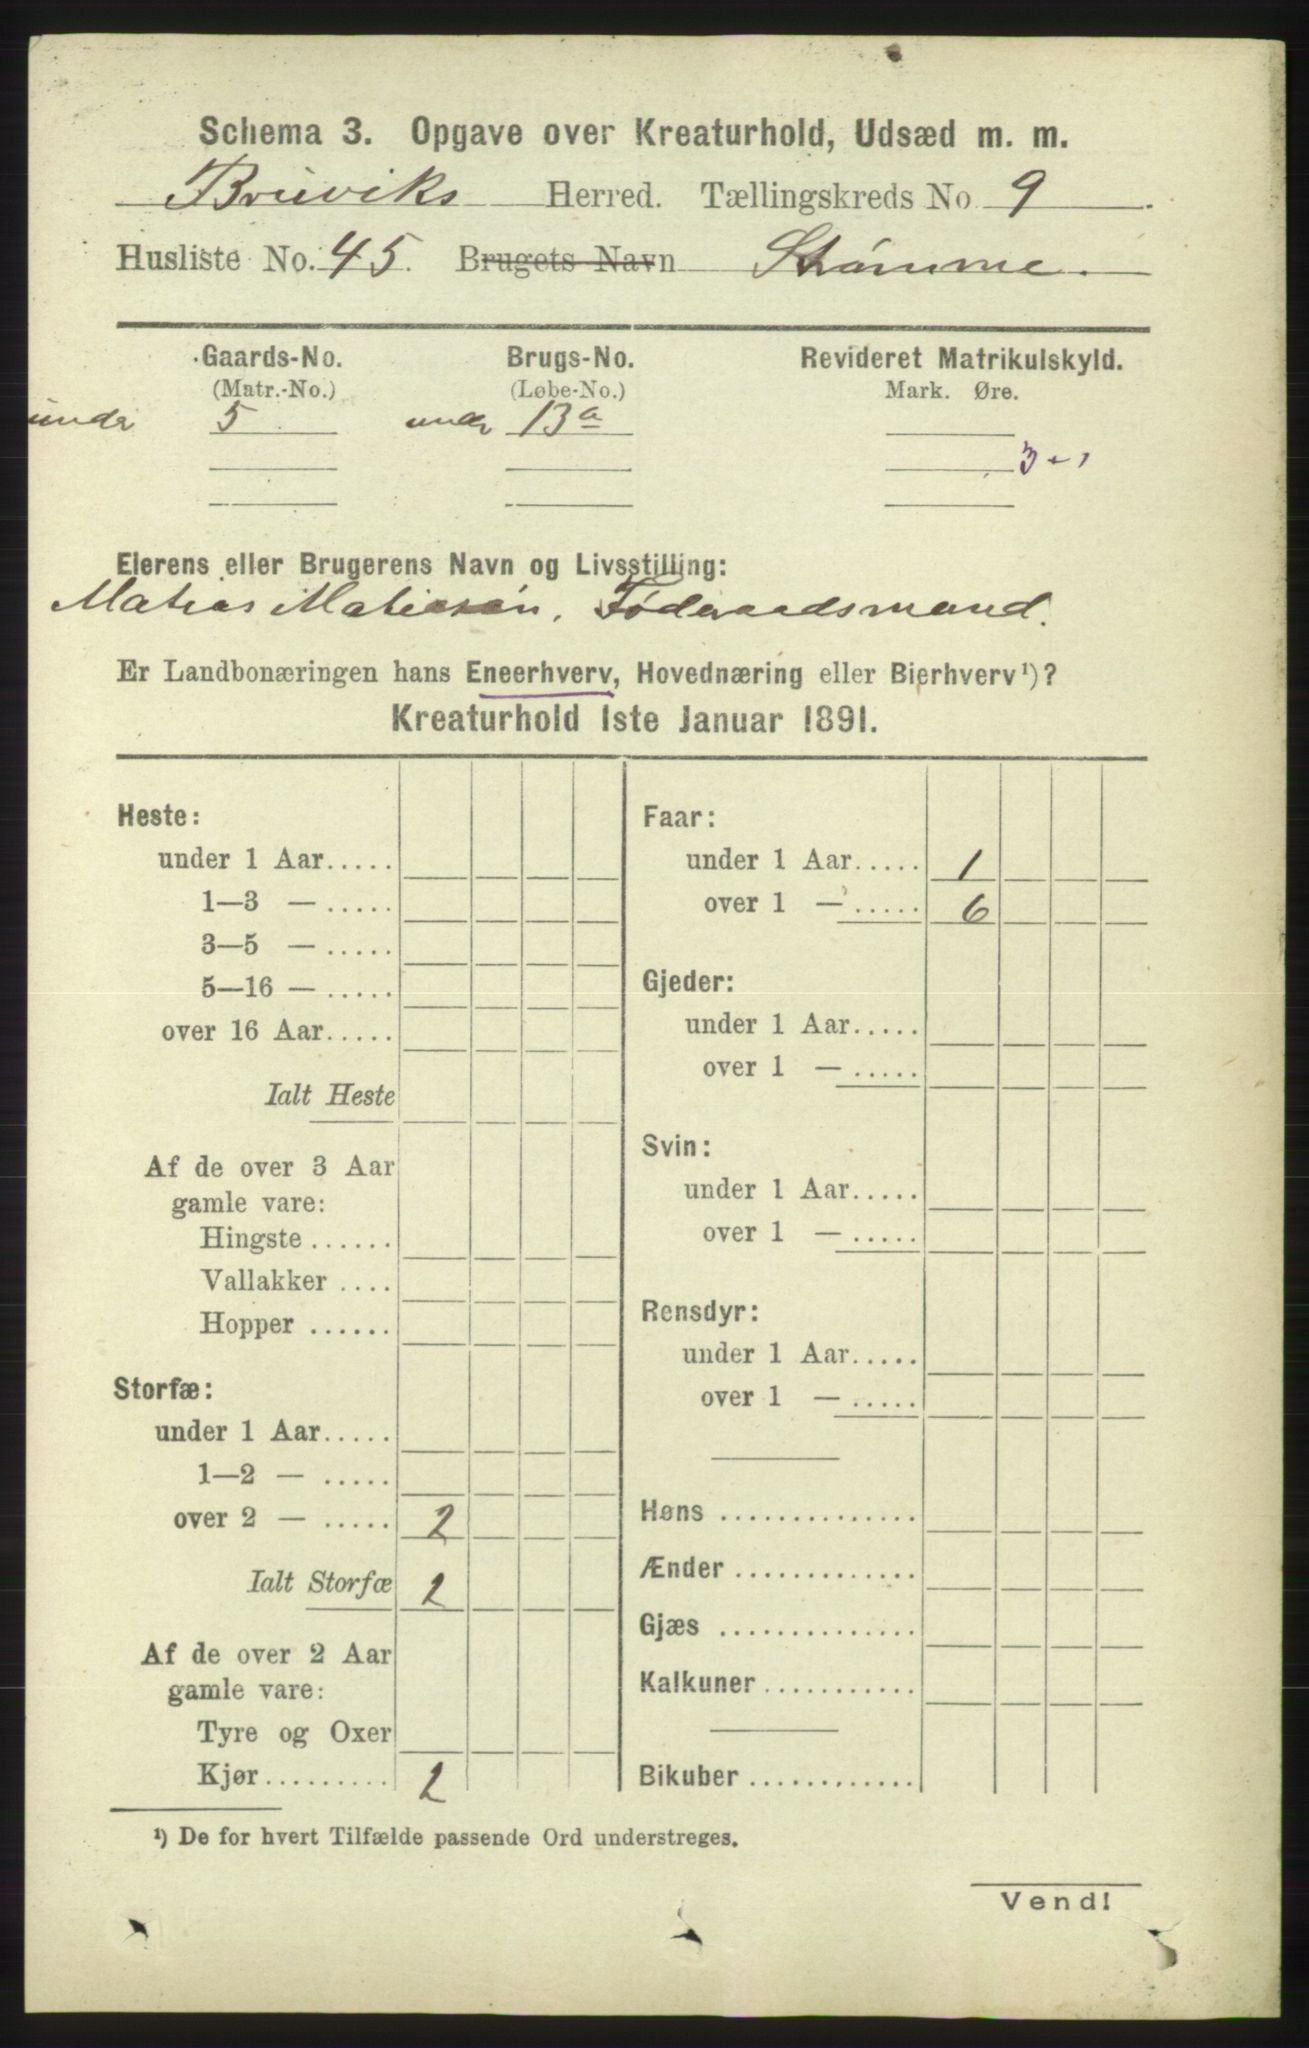 Schema 3. Opgave over Kreaturhold, Udsæd m. m.
Bruviks Herred. Tællingskreds No 9.
Husliste No. 45. Brugets Navn Stamme.
Gaards-No. Brugs-No. Revideret Matrikulskyld.
(Matr.-No.) (Løbe-No.) Mark. Øre.
under 5 under 13a
3
Eierens eller Brugerens Navn og Livsstilling:
Matias Matiasen, Føderaadsmand.
Er Landbonæringen hans Eneerhverv, Hovednæring eller Bierhverv¹)?
Kreaturhold 1ste Januar 1891.
Heste:
under 1 Aar.....
1—3 — .....
3—5 — .....
5—16 — .....
over 16 Aar.....
Ialt Heste
Af de over 3 Aar
gamle vare:
Hingste ......
Vallakker ....
Hopper ......
Storfæ:
under 1 Aar.....
1—2 — .....
over 2 — ..... 2
Ialt Storfæ 2
Af de over 2 Aar
gamle vare:
Tyre og Oxer
Kjør......... 2
Faar:
under 1 Aar..... 1
over 1 — ..... 6
Gjeder:
under 1 Aar.....
over 1 — .....
Svin:
under 1 Aar.....
over 1 — .....
Rensdyr:
under 1 Aar.....
over 1 — .....
Høns ..............
Ænder .............
Gjæs ..............
Kalkuner...........
Bikuber ............
¹) De for hvert Tilfælde passende Ord understreges.
Vend!